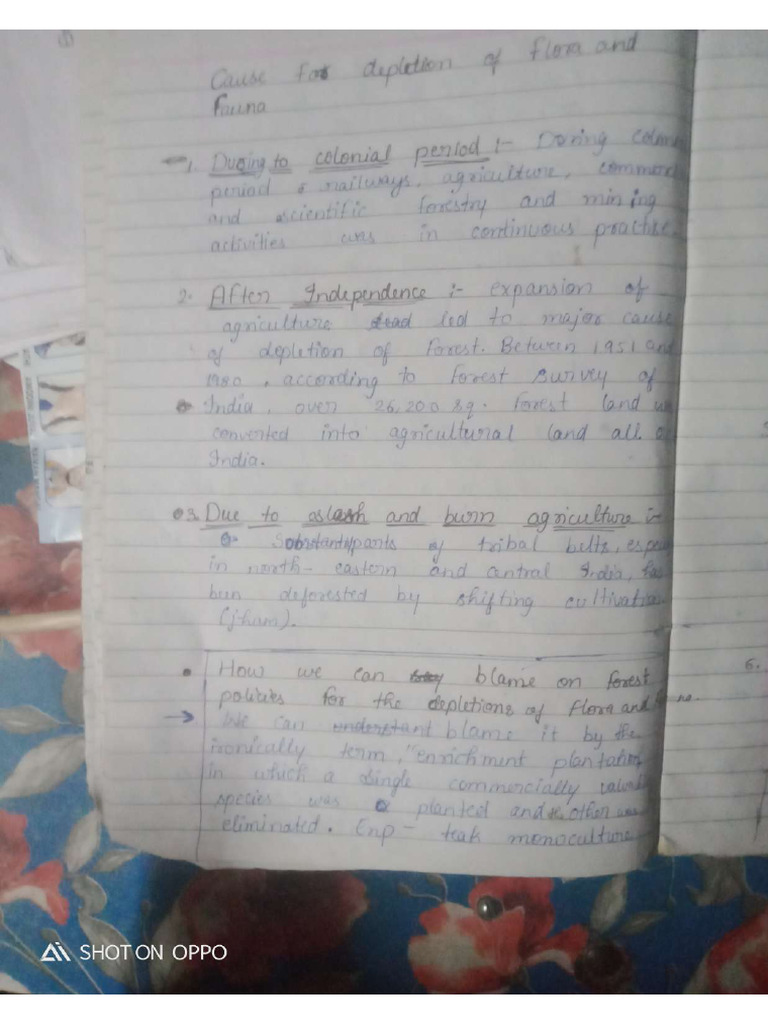 Cause for depletion of flora and
Fauna
1. During to colonial period :- During colon
period railways, agriculture, commerc
and scientific forestry and mining
activities was in continuous practise.
2. After Independence :- expansion of
agriculture led to major cause
of depletion of forest. Between 1951 and
1980, according to forest survey of
India, over 26,200 sq. forest land w
converted into agricultural land all o
India.
3. Due to slash and burn agriculture :-
Substant parts of tribal belts, espe
in north-eastern and central India, has
been deforested by shifting cultivation
(jham).
How we can blame on forest
policies for the depletions of flora and
→ We can blame it by the
ironically term, "enrichment plantation
in which a single commercially valuabl
species was planted and other was
eliminated. Exp - teak monoculture
6.
SHOT ON OPPO